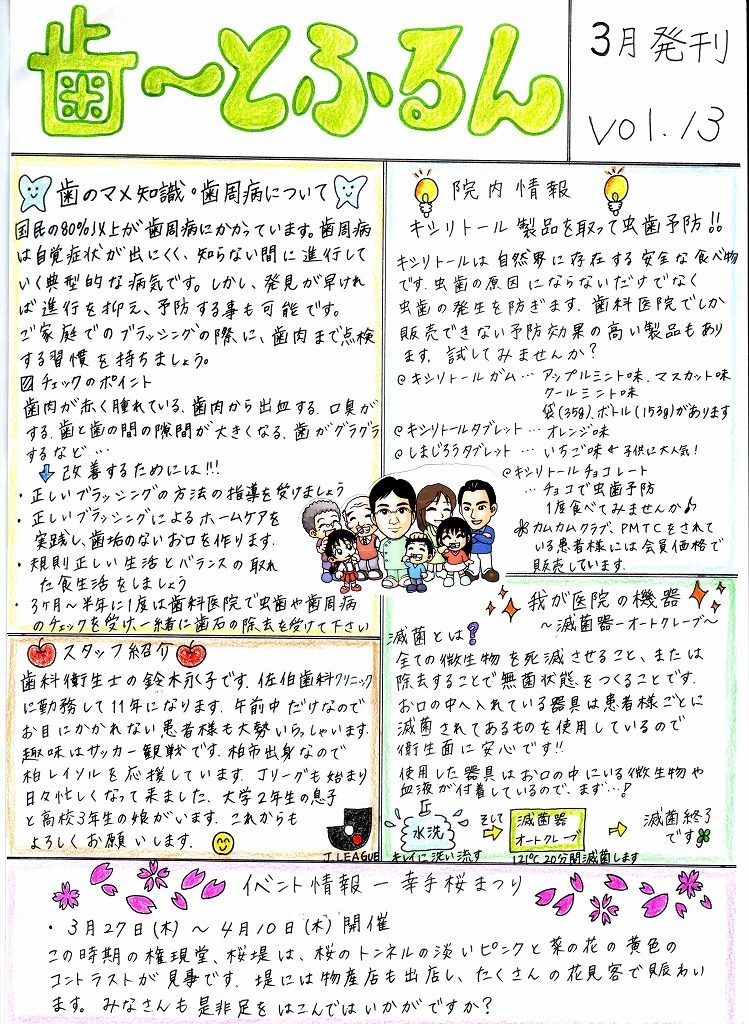 歯～とふるん
3月発刊
vol.13
歯のマメ知識・歯周病について
国民の80%以上が歯周病にかかっています。歯周病
は自覚症状が出にくく、知らない間に進行して
いく典型的な病気です。しかし、発見が早けれ
ば進行を抑え、予防する事も可能です。
ご家庭でのブラッシングの際に、歯肉まで点検
する習慣を持ちましょう。
☑チェックのポイント
歯肉が赤く腫れている、歯肉から出血する、口臭が
する、歯と歯の間の隙間が大きくなる、歯がグラグラ
するなど…
⇩改善するためには!!!
・正しいブラッシングの方法の指導を受けましょう
・正しいブラッシングによるホームケアを
実践し、歯垢のないお口を作ります。
・規則正しい生活とバランスの取れ
た食生活をしましょう
・3ヶ月～半年に1度は歯科医院で虫歯や歯周病
のチェックを受け、一緒に歯石の除去を受けて下さい
院内情報
キシリトール製品を取って虫歯予防!!
キシリトールは自然界に存在する安全な食べ物
です。虫歯の原因にならないだけでなく
虫歯の発生を防ぎます。歯科医院でしか
販売できない予防効果の高い製品もあり
ます。試してみませんか?
@キシリトールガム…アップルミント味、マスカット味
クールミント味
袋(35g)、ボトル(153g)があります
@キシリトールタブレット…オレンジ味
@しまじろうタブレット…いちご味 ←子供に大人気!
@キシリトールチョコレート
…チョコで虫歯予防
1度食べてみませんか♪
※カムカムクラブ、PMTCをされて
いる患者様には会員価格で
販売しています。
スタッフ紹介
歯科衛生士の鈴木永子です。佐伯歯科クリニック
に勤務して11年になります。午前中だけなので
お目にかかれない患者様も大勢いらっしゃいます。
趣味はサッカー観戦です。柏市出身なので
柏レイソルを応援しています。Jリーグも始まり
日々忙しくなって来ました。大学2年生の息子
と高校3年生の娘がいます。これからも
よろしくお願いします。
J.LEAGUE
我が医院の機器
～滅菌器ーオートクレーブ～
滅菌とは?
全ての微生物を死滅させること、または
除去することで無菌状態をつくることです。
お口の中へ入れている器具は患者様ごとに
滅菌されてあるものを使用しているので
衛生面に安心です!!
使用した器具はお口の中にいる微生物や
血液が付着しているので、まず…!
水洗
キレイに洗い流す
そして
滅菌器
オートクレーブ
121℃20分間滅菌します
滅菌終了
です
イベント情報ー幸手桜まつり
・3月27日(木)～4月10日(木)開催
この時期の権現堂、桜堤は、桜のトンネルの淡いピンクと菜の花の黄色の
コントラストが見事です。堤には物産店も出店し、たくさんの花見客で賑わい
ます。みなさんも是非足をはこんではいかがですか?